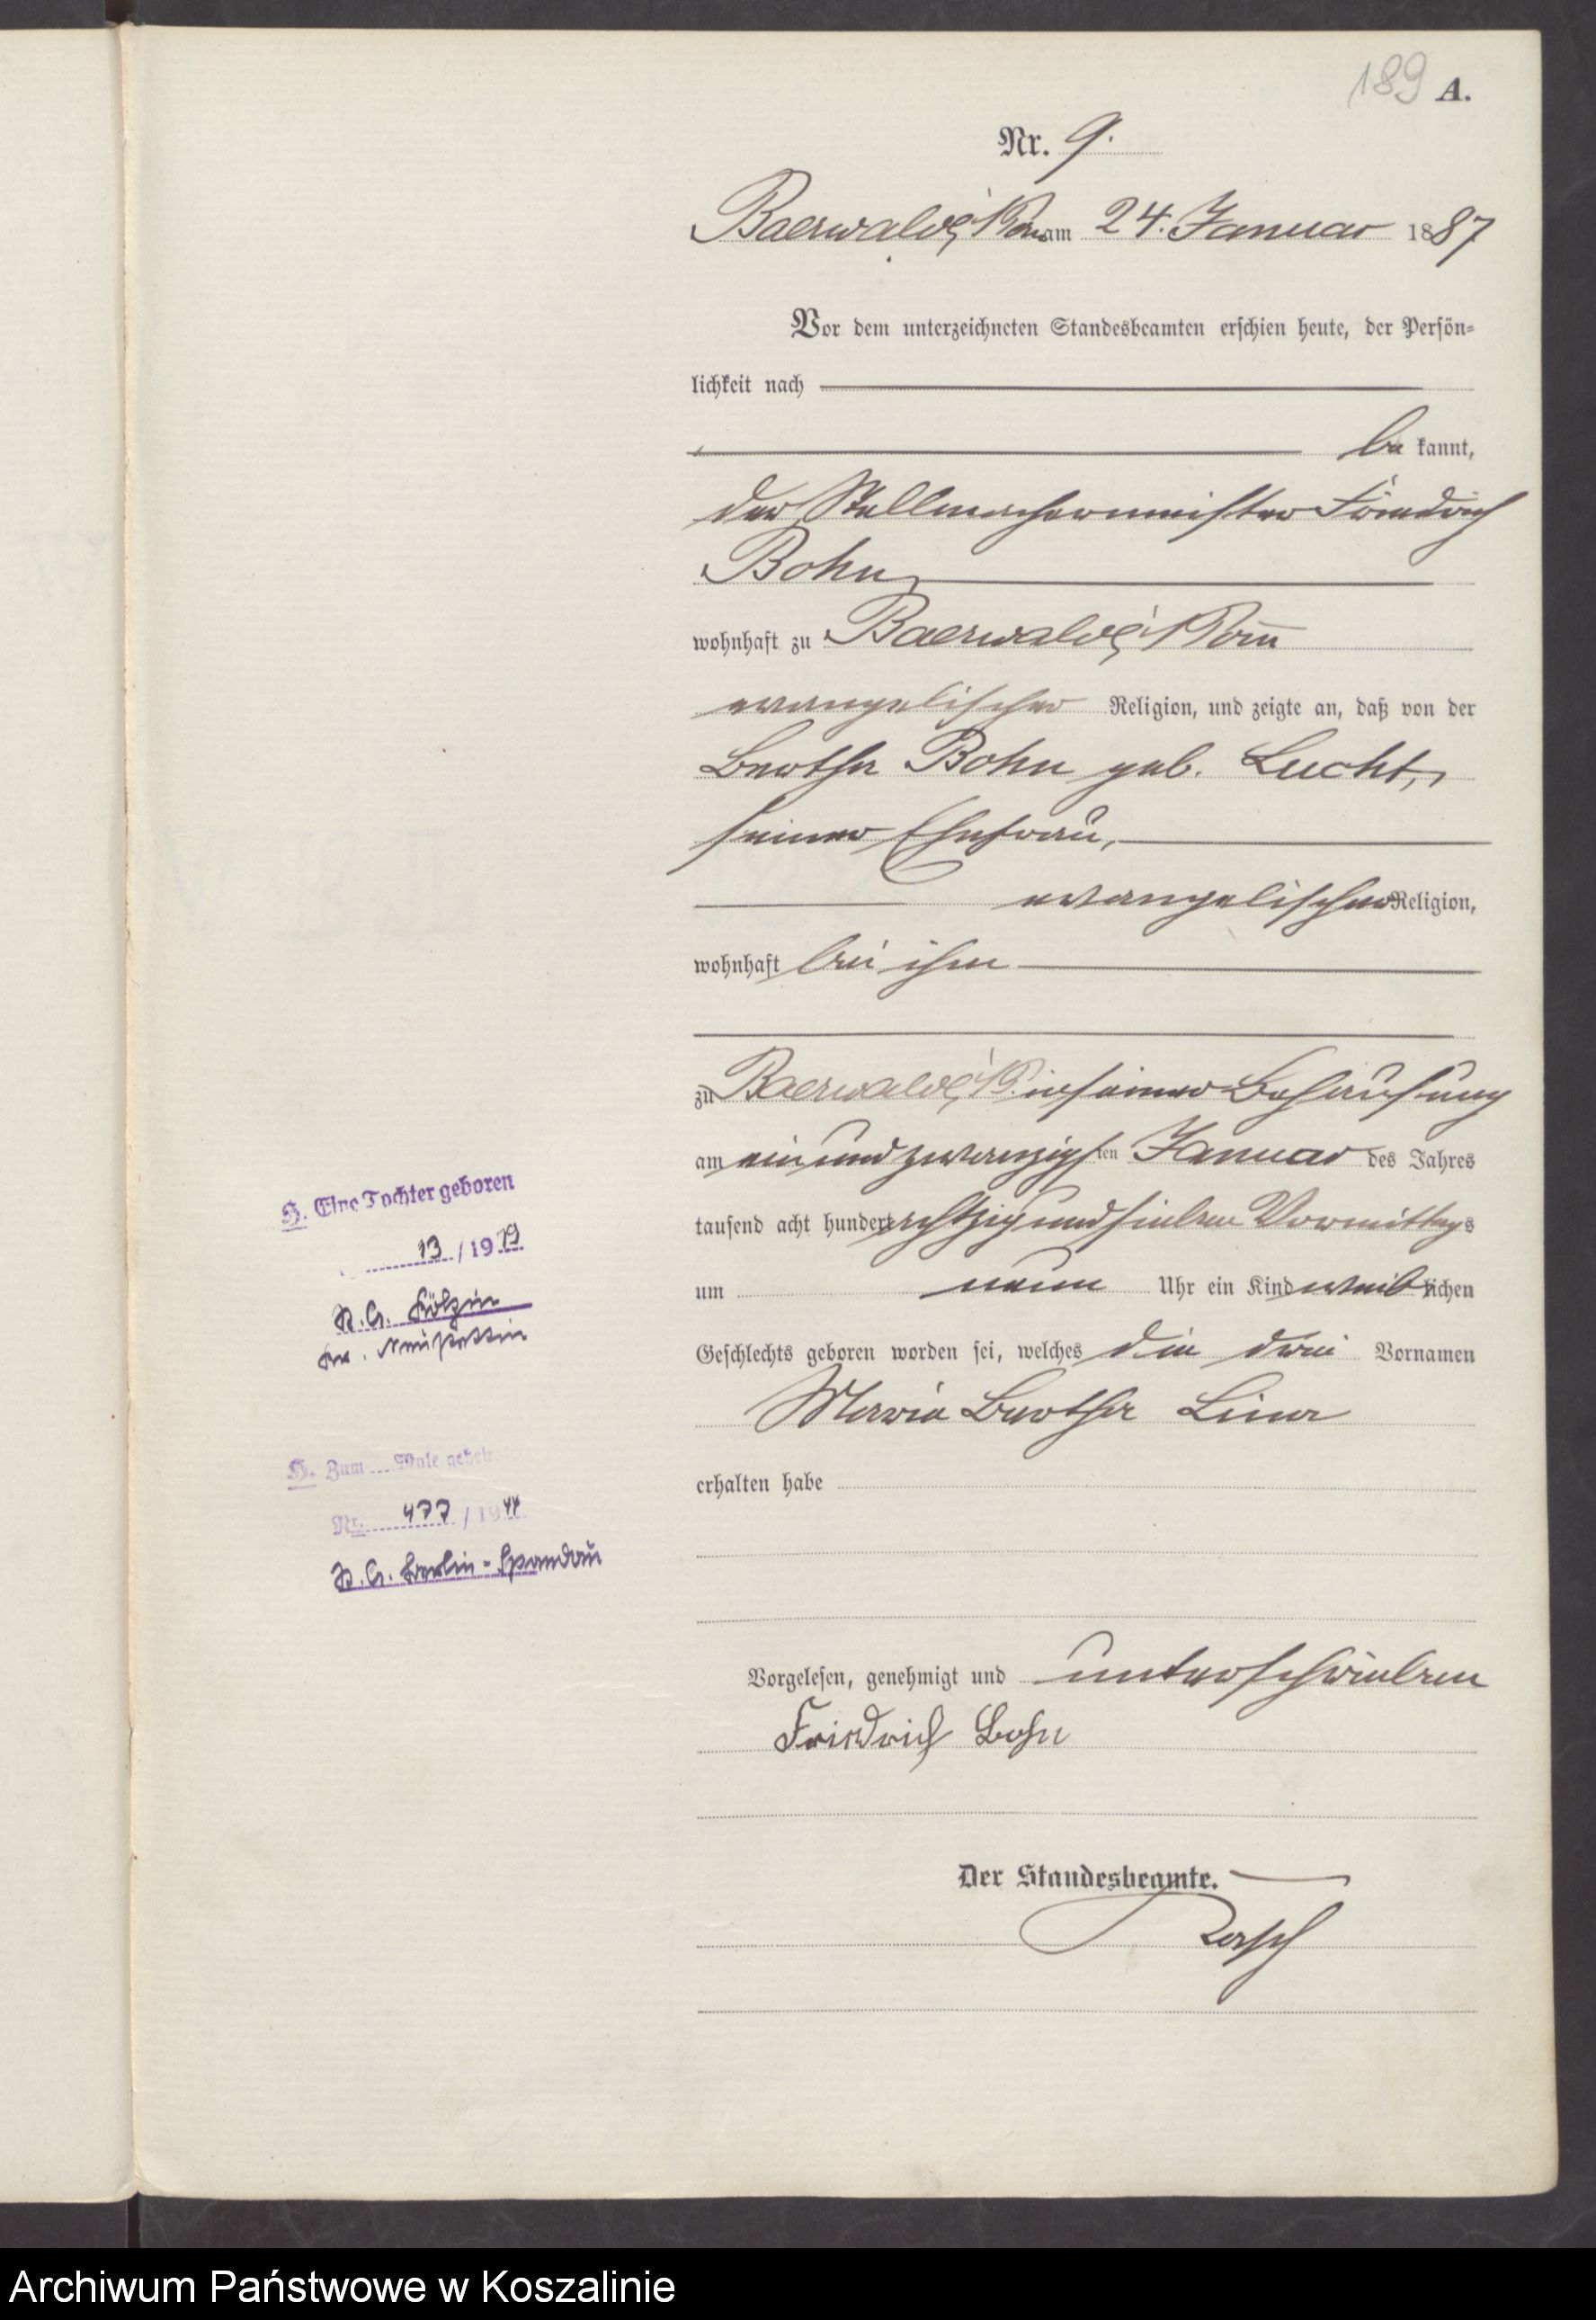 189 A.
Nr. 9.
Baerwalde i/Pom am 24. Januar 1887
Vor dem unterzeichneten Standesbeamten erschien heute, der Persön-
lichkeit nach
be kannt,
der Stellmachermeister Friedrich
Bohn,
wohnhaft zu Baerwalde i/Pom
evangelischer Religion, und zeigte an, daß von der
Bertha Bohn geb. Lucht,
seiner Ehefrau,
evangelischer Religion,
wohnhaft bei ihm
zu Baerwalde i/P. in seiner Behausung
am ein und zwanzigsten Januar des Jahres
tausend acht hundert achtzig und sieben Vormittags
um neun Uhr ein Kind weiblichen
Geschlechts geboren worden sei, welches die drei Vornamen
Maria Bertha Lina
erhalten habe
Vorgelesen, genehmigt und unterschrieben
Friedrich Bohn
Der Standesbeamte.
H. Eine Tochter geboren
13 / 19
St. A.
Kr. Neustettin
H. Zum Male
Nr. 477 / 1944
St. A. Berlin-Spandau
Archiwum Państwowe w Koszalinie